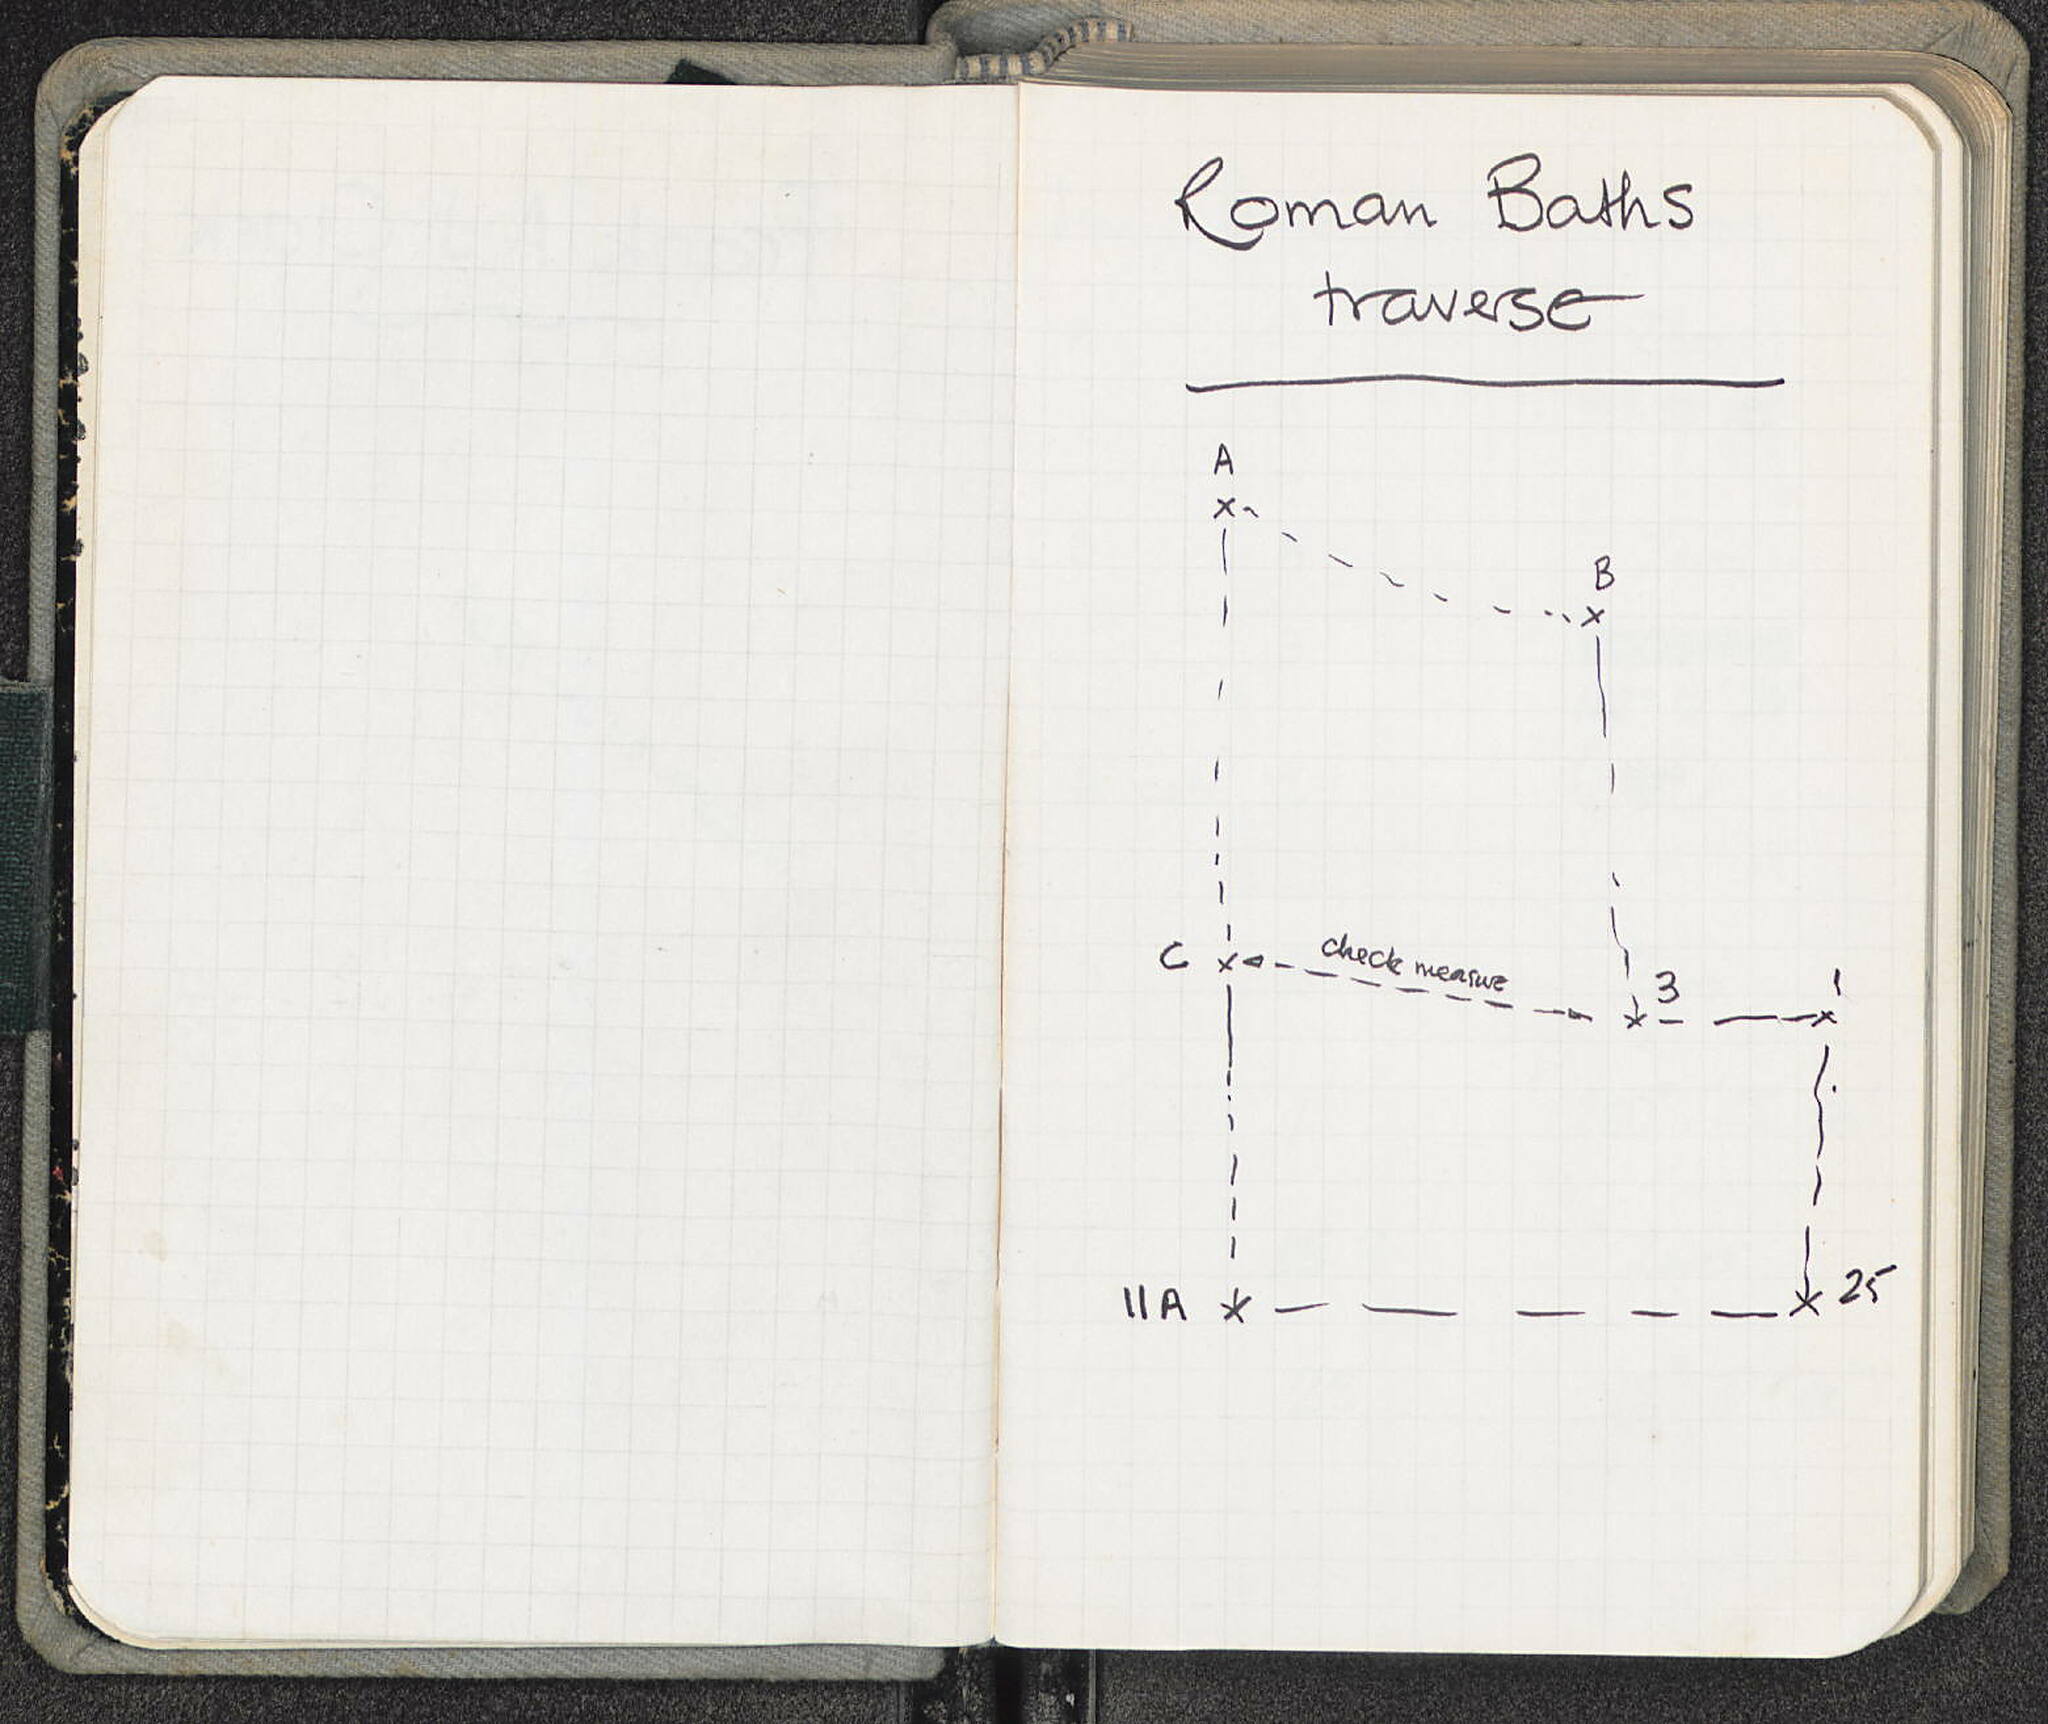 Roman Baths
traverse
A
B
C
check measure
3
1
11A
25